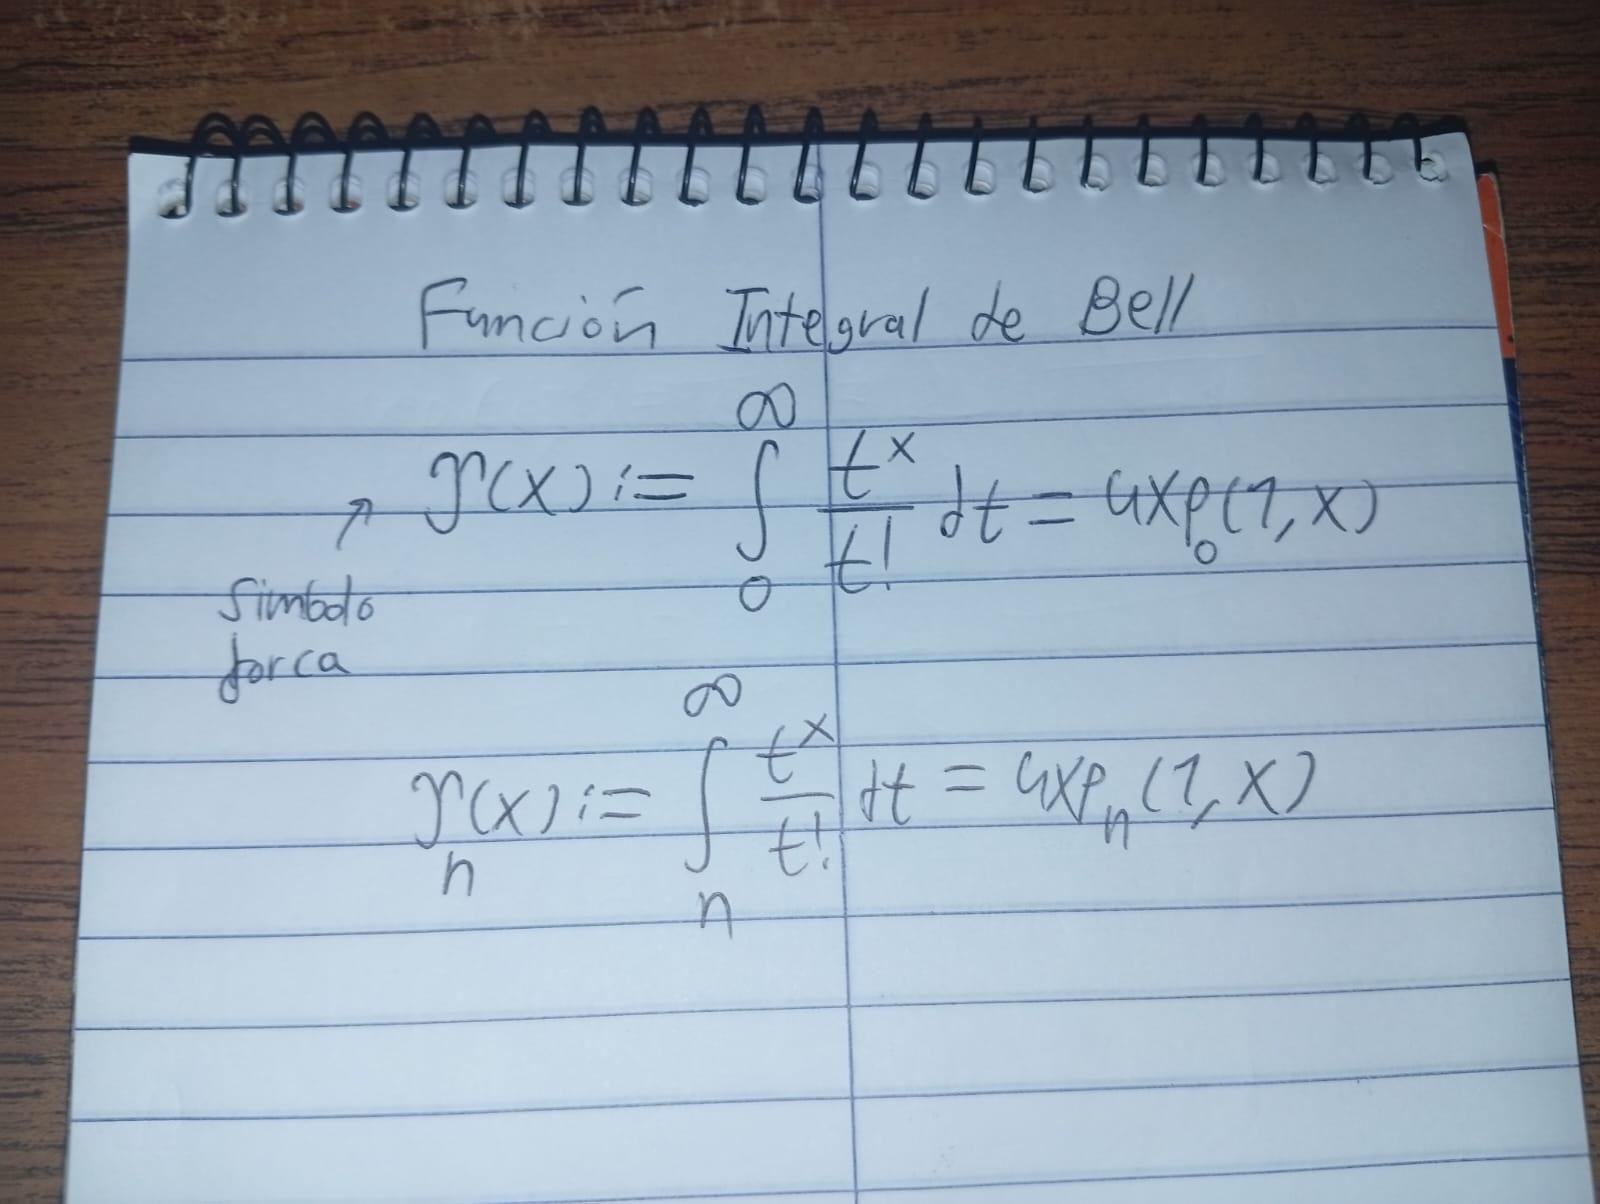 Función Integral de Bell
ϒ(x) := ∫₀^∞ t^x / t! dt = uxp₀(1, x)
↗
Simbolo
forca
ϒₙ(x) := ∫ₙ^∞ t^x / t! dt = uxpₙ(1, x)